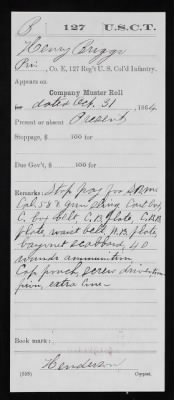 B 127 U.S.C.T.
Henry Briggs
Pvt., Co. E, 127 Reg't U. S. Col'd Infantry.
Appears on
Company Muster Roll
for dated Oct. 31, 1864.
Present or absent Present
Stoppage, $ 100 for
Due Gov't, $ 100 for
Remarks: Stop pay for
Cal. 58 & gun sling
C. box belt, C. B. plate, C. B. B.
plate, waist belt, W. B. plate,
bayonet scabbard, 40
rounds ammunition
Cap pouch, screw driver
extra cone
Book mark:
Henderson
(358) Copyist.